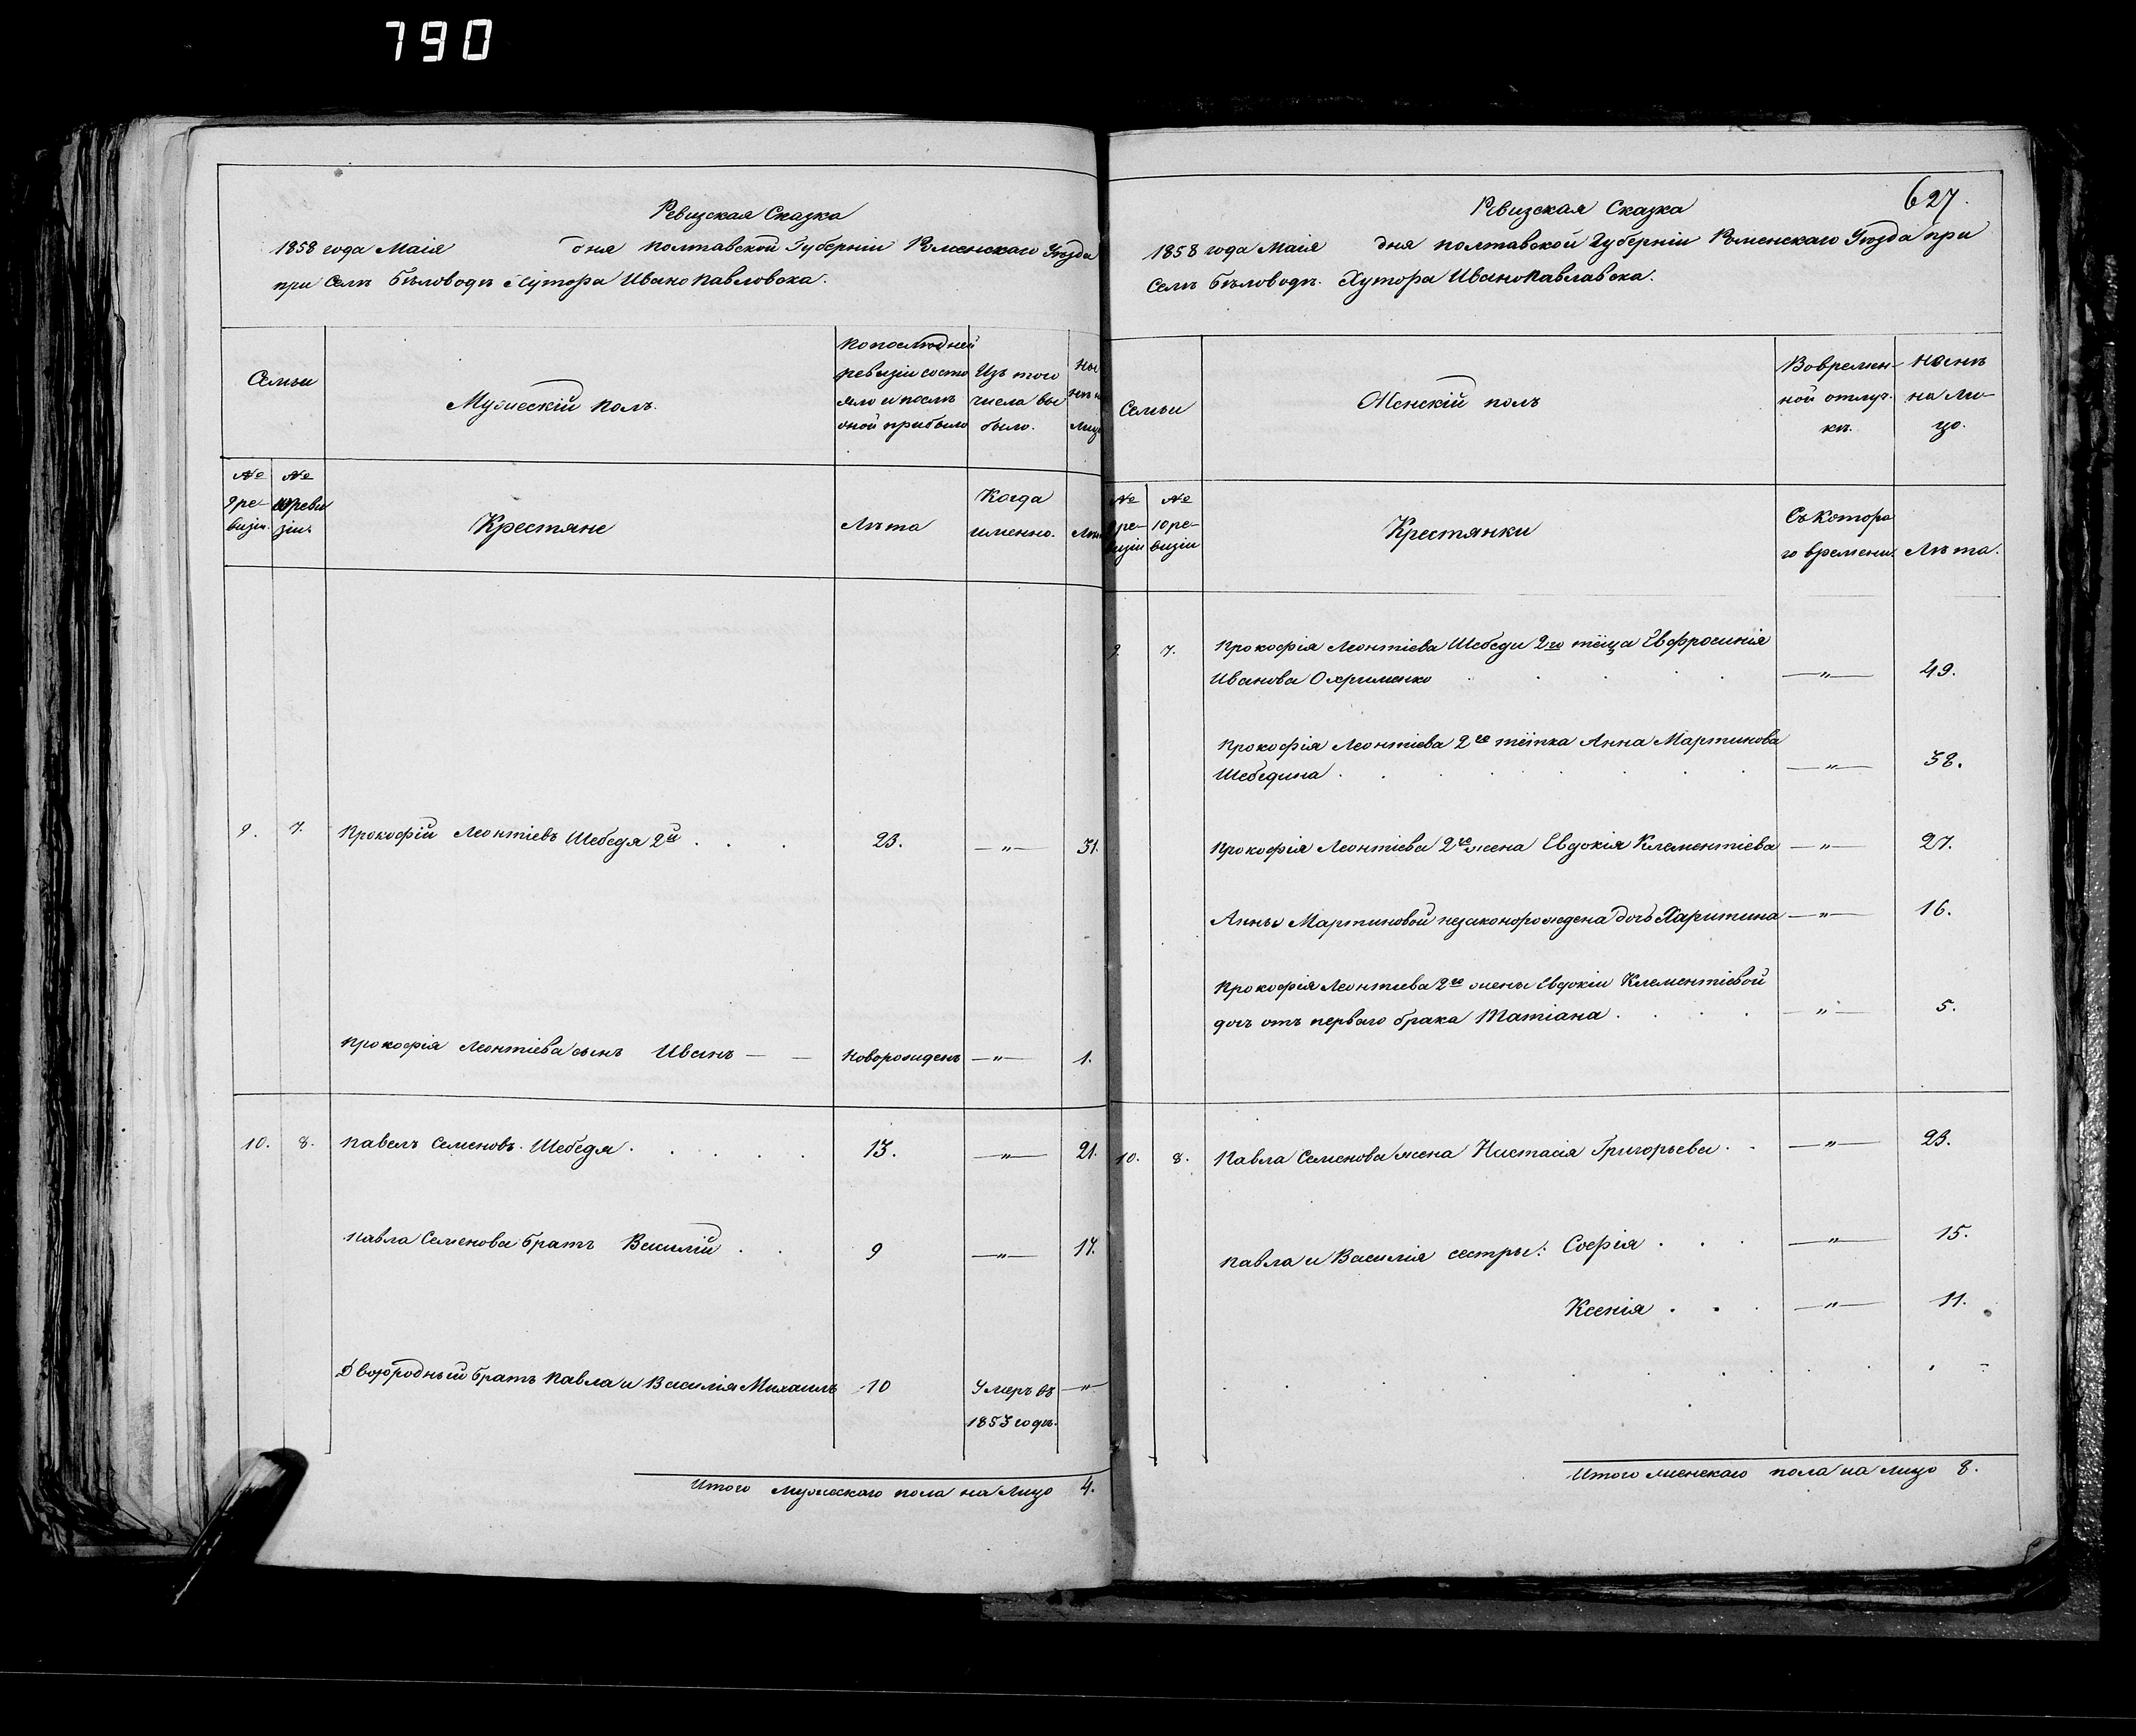 790
Ревизская Сказка
1858 года Маія дня Полтавской Губерніи Роменскаго Уѣзда
при Селѣ Бѣловодѣ Хутора ИваноПавловска.
Семьи
Мужескій полъ.
По последней
ревизіи состо
яло и послѣ
оной прибыло
Изъ того
числа вы
было.
Ны
нѣ н
лицо
№
9 ре-
визіи.
№
10 реви
зіи.
Крестяне
Лѣта
Когда
именно.
Лѣт
9. 7. Прокофій Леонтіевъ Шебедя 2й . . . 23. —„— 31.
Прокофія Леонтіева сынъ Иванъ — — Новорожденъ —„— 1.
10. 8. Павелъ Семеновъ Шебедя . . . . . 13. —„— 21.
Павла Семенова братъ Василій . . 9 —„— 17.
Двоюродный братъ Павла и Василія Михаилъ 10 Умеръ въ —„—
1853 годѣ.
Итого мужескаго пола на лицо 4.
627.
Ревизская Сказка
1858 года Маія дня Полтавской Губерніи Роменскаго Уѣзда при
Селѣ Бѣловодѣ. Хутора ИваноПавлавска.
Семьи
Женскій полъ
Во времен-
ной отлуч-
кѣ.
Нынѣ
на ли-
цо.
№
9 ре-
визіи
№
10 ре-
визіи
Крестянки
Съ котора
го времени.
Лѣта.
9. 7. Прокофія Леонтіева Шебеди 2го тёща Евфросинія
Иванова Охрименко . . . . —„— 49.
Прокофія Леонтіева 2го тётка Анна Мартинова
Шебедина . . . . . . . —„— 38.
Прокофія Леонтіева 2го жена Евдокія Клементіева —„— 27.
Анны Мартиновой незаконорождена дочь Харитина —„— 16.
Прокофія Леонтиева 2го жены Евдокіи Клементіевой
дочъ отъ перваго брака Татіана . . . . —„— 5.
10. 8. Павла Семенова жена Настасія Григорьева . . —„— 23.
Павла и Василія сестры: Софія . . . —„— 15.
Ксенія . . . —„— 11.
Итого женскаго пола на лицо 8.